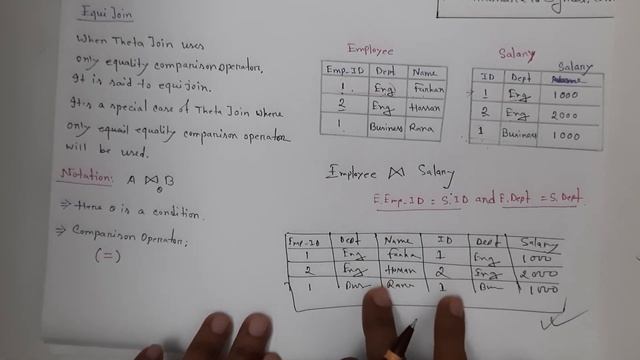 Equi Join
When Theta Join uses
only equality comparison operators,
It is said to equi join.
It is a special case of Theta Join where
only equail equality comparison operator
will be used.
Notation: A ⋈θ B
⇒ Here θ is a condition.
⇒ Comparison Operator;
(=)
Employee
Emp-ID Dept Name
1 Eng Farhan
2 Eng Hassan
1 Business Rana
Salary
Salary
ID Dept
1 Eng 1000
2 Eng 2000
1 Business 1000
Employee ⋈ Salary
E.Emp.ID = S.ID and E.Dept = S.Dept.
Emp-ID Dept Name ID Dept Salary
1 Eng Farha 1 Eng 1000
2 Eng Hassan 2 Eng 2000
1 Bus Rana 1 Bus 1000